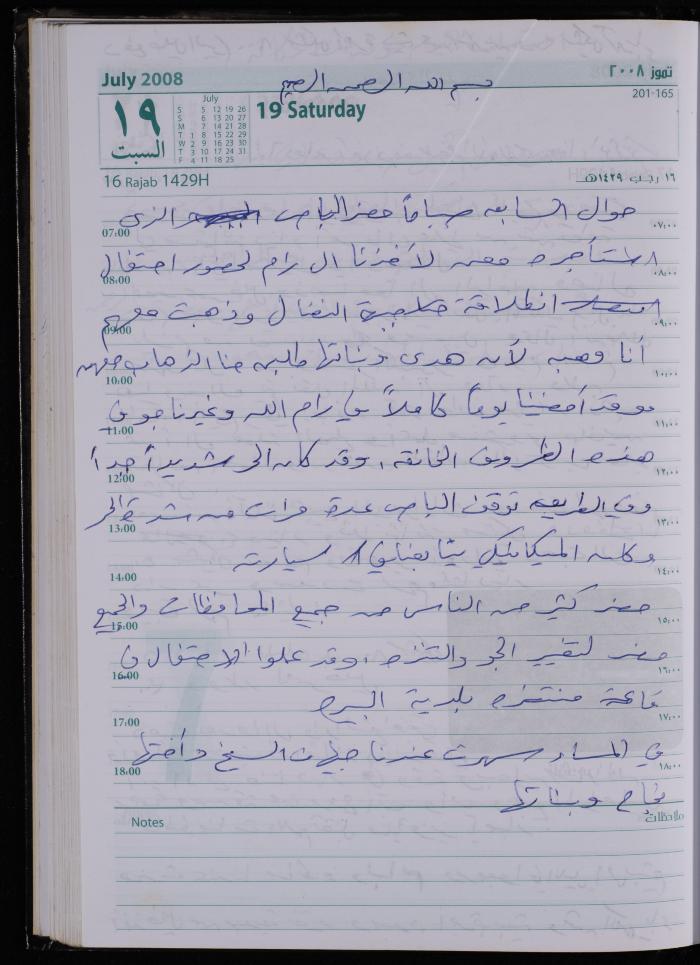 July 2008
تموز ٢٠٠٨
بسم الله الرحمن الرحيم
201-165
١٩
السبت
July
S 5 12 19 26
S 6 13 20 27
M 7 14 21 28
T 1 8 15 22 29
W 2 9 16 23 30
T 3 10 17 24 31
F 4 11 18 25
19 Saturday
16 Rajab 1429H
١٦ رجب ١٤٢٩هـ
حوالي السابعة صباحاً حضر الباص الذي
07:00 ٠٧:٠٠
استأجره لأخذنا الى رام لحضور احتفال
08:00 ٠٨:٠٠
انطلاقة النضال وذهبت معهم
09:00 ٠٩:٠٠
أنا وهبه لأن هدى وبناتها طلبن منا الذهاب معهن
10:00 ١٠:٠٠
وقد أمضينا يوماً كاملاً في رام الله وغيرنا جو
11:00 ١١:٠٠
هذه الظروف الخانقة، وقد كان الحر شديداً جداً
12:00 ١٢:٠٠
وفي الطريق توقف الباص عدة مرات من شدة الحر
13:00 ١٣:٠٠
وكان الميكانيكي سيارته
14:00 ١٤:٠٠
حضر كثير من الناس من جميع المحافظات والجميع
15:00 ١٥:٠٠
حضر لتغيير الجو والتنزه، وقد عملوا الاحتفال في
16:00 ١٦:٠٠
قاعة منتزه بلدية البيره
17:00 ١٧:٠٠
في المساء سهرت عندنا جيهان الشيخ وأختها
18:00 ١٨:٠٠
نجاح وبناتها
Notes ملاحظات